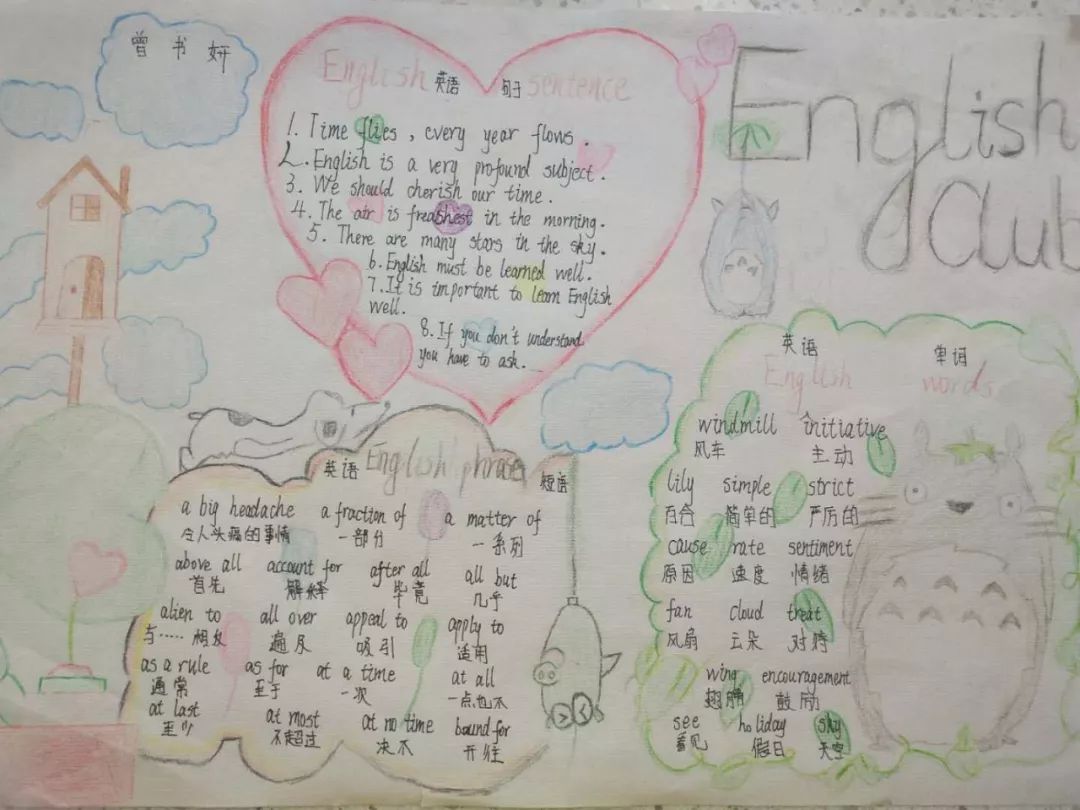 曾书妍
English Club
English 英语 句子 sentence
1. Time flies, every year flows.
2. English is a very profound subject.
3. We should cherish our time.
4. The air is freashest in the morning.
5. There are many stars in the sky.
6. English must be learned well.
7. It is important to learn English
well.
8. If you don't understand
you have to ask.
英语 English phrase 短语
a big headache a fraction of a matter of
令人头痛的事情 一部分 一系列
above all account for after all all but
首先 解释 毕竟 几乎
alien to all over appeal to apply to
与…… 相反 遍及 吸引 适用
as a rule as for at a time at all
通常 至于 一次 一点也不
at last at most at no time bound for
至少 不超过 决不 开往
英语 单词
English words
windmill initiative
风车 主动
lily simple strict
百合 简单的 严厉的
cause rate sentiment
原因 速度 情绪
fan cloud treat
风扇 云朵 对待
wing encouragement
翅膀 鼓励
see holiday sky
看见 假日 天空